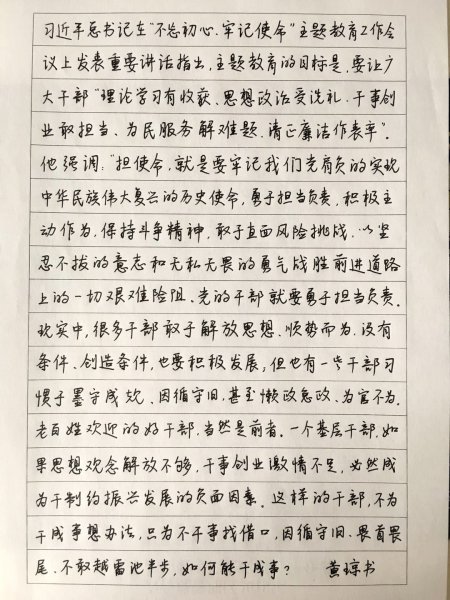 习近平总书记在“不忘初心、牢记使命”主题教育工作会
议上发表重要讲话指出,主题教育的目标是,要让广
大干部“理论学习有收获、思想政治受洗礼、干事创
业敢担当、为民服务解难题、清正廉洁作表率”。
他强调:“担使命,就是要牢记我们党肩负的实现
中华民族伟大复兴的历史使命,勇于担当负责,积极主
动作为,保持斗争精神,敢于直面风险挑战,以坚
忍不拔的意志和无私无畏的勇气战胜前进道路
上的一切艰难险阻。党的干部就要勇于担当负责。
现实中,很多干部敢于解放思想、顺势而为,没有
条件、创造条件,也要积极发展,但也有一些干部习
惯于墨守成规、因循守旧,甚至懒政怠政、为官不为。
老百姓欢迎的好干部,当然是前者。一个基层干部,如
果思想观念解放不够,干事创业激情不足,必然成
为干制约振兴发展的负面因素。这样的干部,不为
干成事想办法,只为不干事找借口,因循守旧、畏首畏
尾、不敢越雷池半步,如何能干成事? 黄琼书